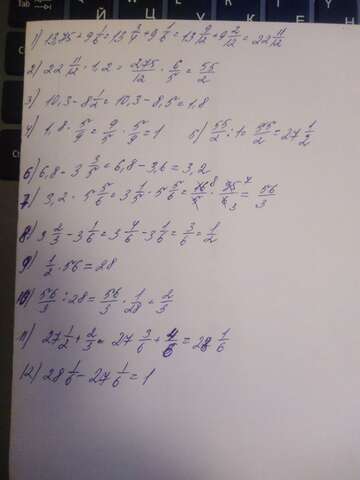 1) 13,75+9 1/6=13 3/4+9 1/6=13 9/12+9 2/12=22 11/12
2) 22 11/12 · 1,2=275/12 · 6/5=55/2
3) 10,3-8 1/2=10,3-8,5=1,8
4) 1,8 · 5/9=9/5 · 5/9=1 5) 55/2:1=55/2=27 1/2
6) 6,8-3 3/5=6,8-3,6=3,2
7) 3,2 · 5 5/6=3 1/5 · 5 5/6=16 8/5 · 35 7/6 3=56/3
8) 3 2/3-3 1/6=3 4/6-3 1/6=3/6=1/2
9) 1/2 · 56=28
10) 56/3:28=56/3 · 1/28=2/3
11) 27 1/2+2/3=27 3/6+4/6=28 1/6
12) 28 1/6-27 1/6=1